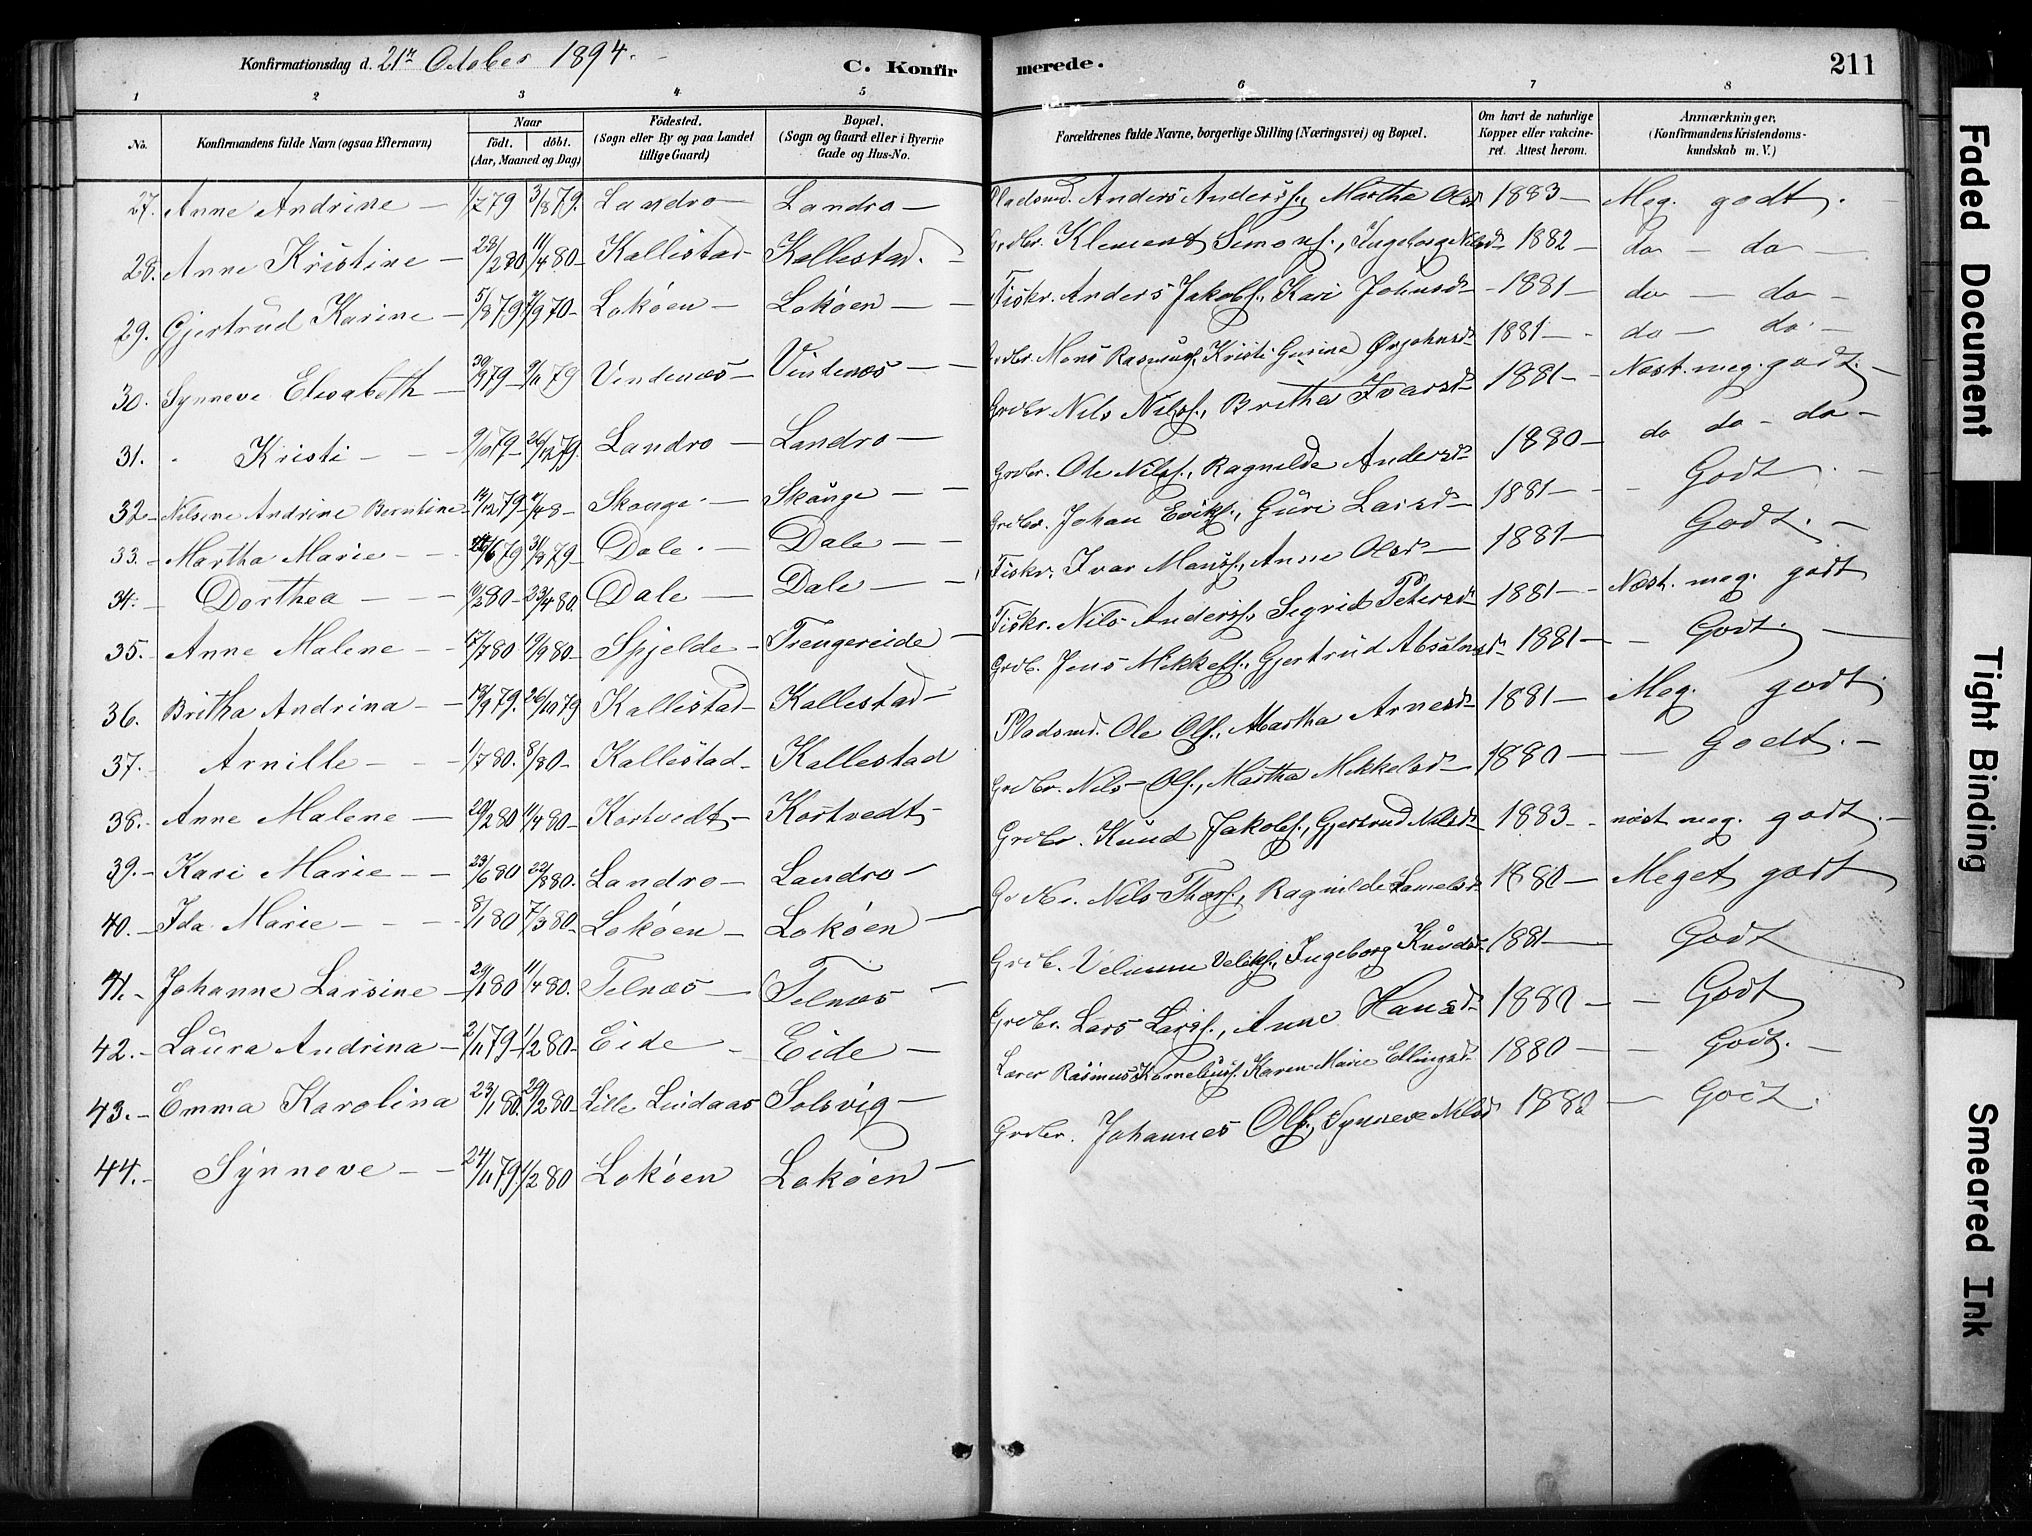 Konfirmationsdag d. 21n October 1894.
C. Konfirmerede.
211
1 2 3 4 5 6 7 8
No.
Konfirmandens fulde Navn (ogsaa Efternavn)
Naar
født. døbt.
(Aar, Maaned og Dag)
Fødested.
(Sogn eller By og paa Landet
tillige Gaard)
Bopæl.
(Sogn og Gaard eller i Byerne
Gade og Hus-No.
Forældrenes fulde Navne, borgerlige Stilling (Næringsvei) og Bopæl.
Om havt de naturlige
Kopper eller vakcine-
ret. Attest herom.
Anmærkninger.
(Konfirmandens Kristendoms-
kundskab m. V.)
27. Anne Andrine — 1/2 79 3/8 79. Landro — Landro — Pladsmd. Anders Anderss., Martha Olsd 1883 — Meg. godt.
28. Anne Kristine — 28/2 80 11/4 80 — Kallestad — Kallestad. — Grdbr. Klement Simons., Ingeborg Nilsd 1882 — do — do —
29. Gjertrud Karine — 5/8 79 7/9 70 — Lokøen — Lokøen — Fiskr. Anders Jakobs., Kari Johnsd — 1881 — do — do —
30. Synneve Elisabeth — 30/9 79 — 9/11 79 Vindenæs — Vindenæs — Grdbr. Mons Rasmuss., Kristi Gurine Ørjahnsd 1881 — do — do. —
31. Kristi — — 9/10 79 — 26/12 79. Landro — Landro — Grdbr. Nils Nilss., Britha Ivarsd 1881 — Næst. meg. godt. —
32 — Nilsine Andrine Berntine — 14/12 79 — Skoage — Skånge — — Grdbr. Ole Nilss., Ragnilde Andersd 1880 — do do — do —
33. — Martha Marie — — /6 79 31/8 79 — Dale. — Dale — — Grdbr. Johan Eriks., Guri Larsd 1881 — — Godt.
34. — Dorthea — — — /3 80 — 23/4 80. Dale — Dale — — Fiskr. Ivar Monss., Anne Olsd — 1881 — Godt. —
35. — Anne Malene — — 17/7 80 19/9 80 — Spjelde — Trengereide — Fiskr. Nils Anderss., Segrid Petersd 1881 — Næst. meg. godt
36. Britha Andrina — — 18/9 79. 26/10 79 Kallestad — Kallestad — Grdb. Jens Mikkels., Gjertrud Absalonsd 1881 — — Godt. —
37. — Arnille — — 1/7 80. 8/ 80 — Kallestad — Kallestad Pladsmd. Ole Ols., Martha Arnesd 1881 — Meg. godt.
38. — Anne Malene — 20/2 80 11/4 80 — Kortvedt — Kortvedt — Grdbr. Nils Ols., Martha Mikkelsd — 1880 — — Godt. —
39. — Kari Marie — — 23/6 80 22/8 80. Landro — Landro — Grdbr. Knud Jakobs., Gjertrud Nilsd 1883 — næst meg. godt. —
40. — Ida Marie — — — 8/1 80 7/3 80 — Lokøen — Lokøen — Grdbr. Nils Thors., Ragnilde Lamelsd 1880 — Meget godt
41. — Johanne Larsine — 29/1 80 11/4 80. Telnæs — Telnæs — Grdb. Ingeborg Knudsd 1881 — Godt
42. — Laura Andrina — 2/11 79 — 1/2 80 — Eide — Eide — Grdbr. Lars Larss., Anne Hansd 1880 — — Godt
43. — Emma Karolina 23/1 80. 29/2 80 — Lille Lindaas Solsvig — Lærer Rasmus Kornelius., Karen Marie Ellingsd 1880 — — Godt. —
44. — Synneve — — 24/11 79 1/2 80 Lokøen Lokøen — Grdbr. Johannes Ols., Synneve Nilsd 1880 — Godt.
Faded Document
Tight Binding
Smeared Ink